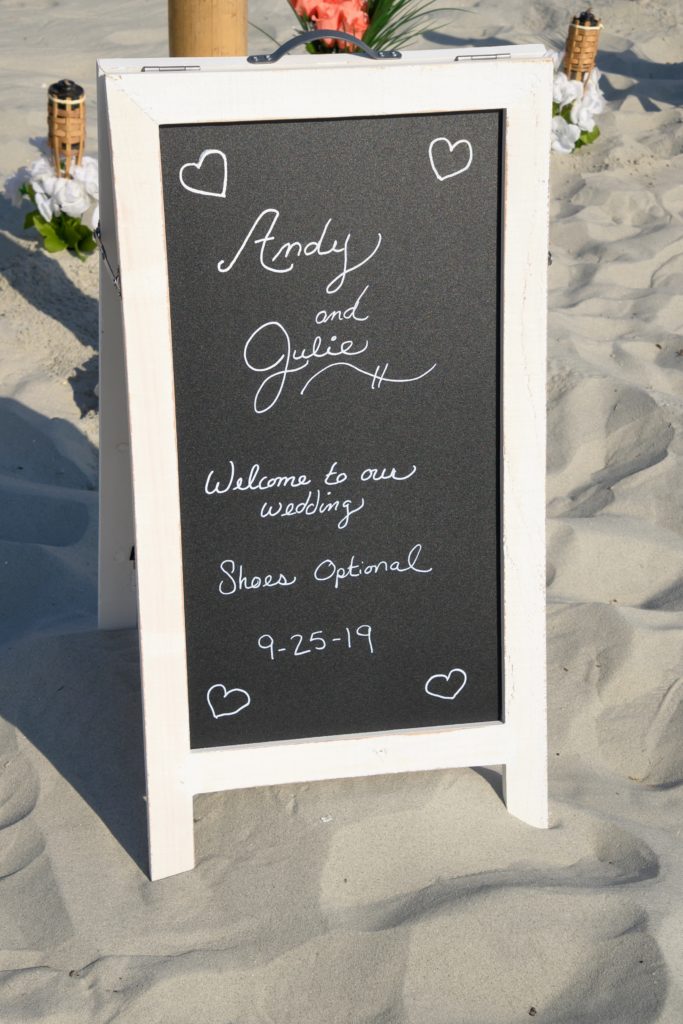 Andy
and
Julie
Welcome to our
wedding
Shoes Optional
9-25-19